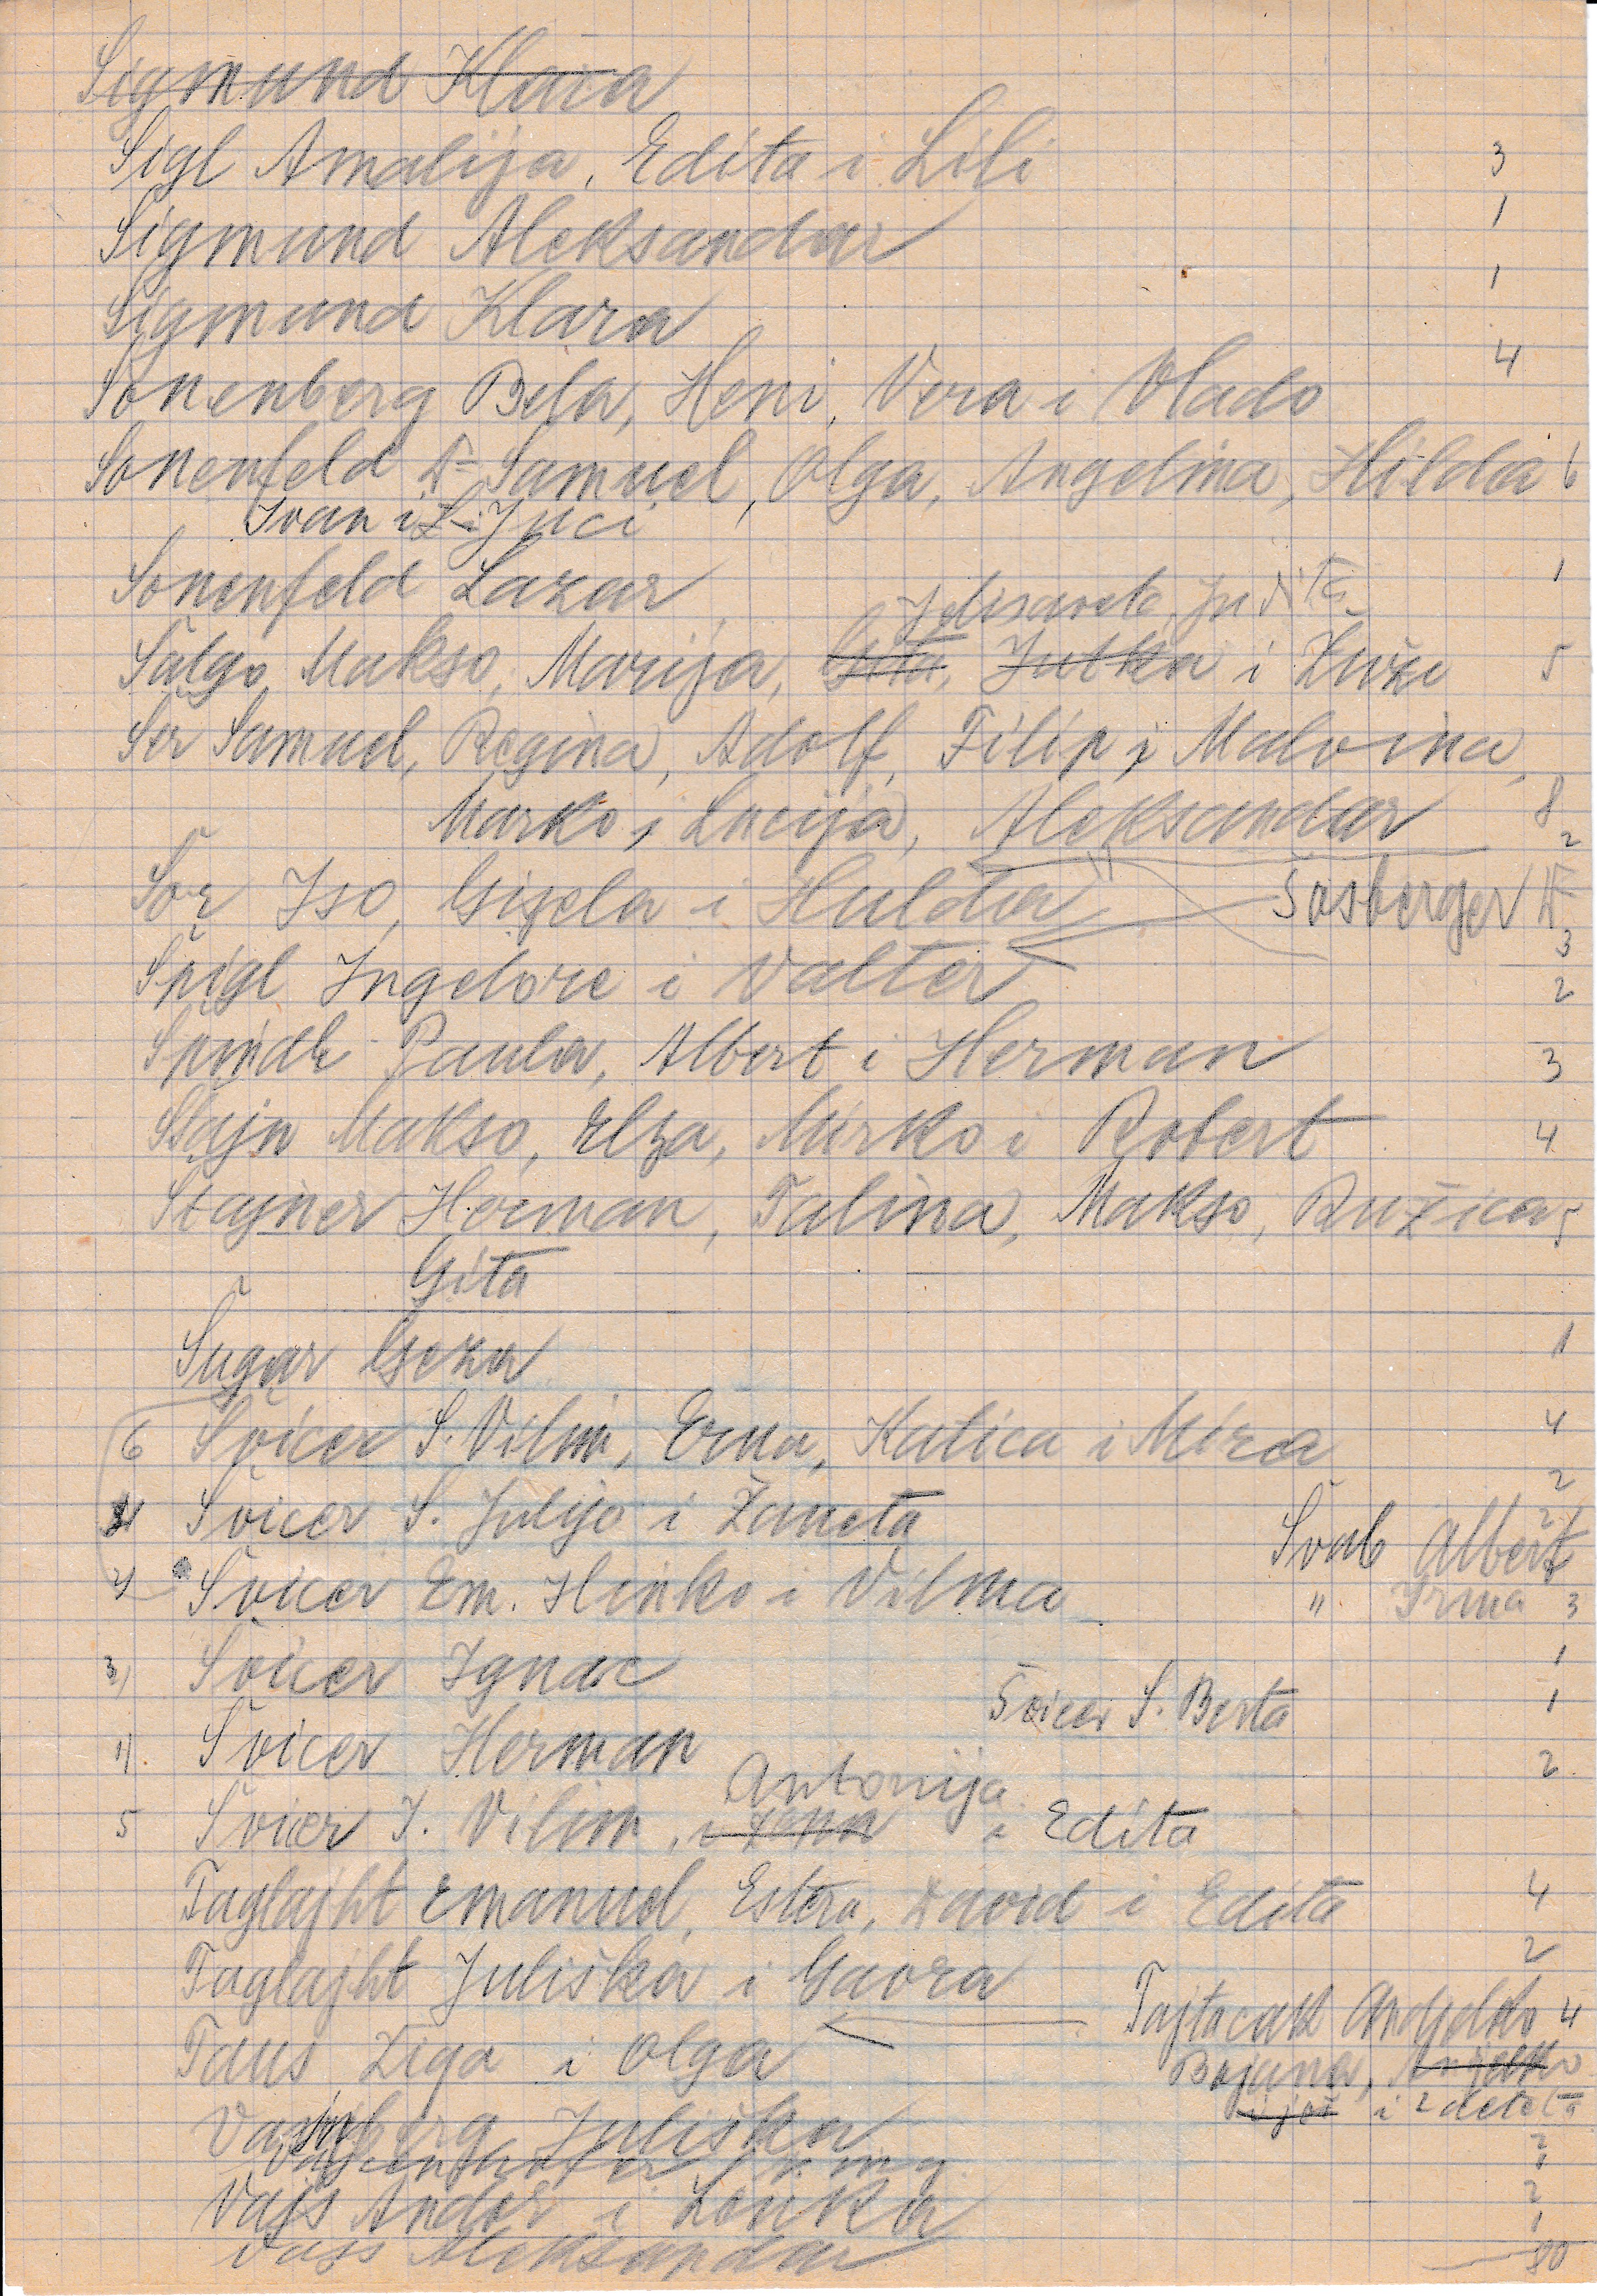 Sigmund Klara
Sigl Amalija, Edita i Lili 3
Sigmund Aleksandar 1
Sigmund Klara 1
Sonenberg Bela, Heni, Vera i Vlado 4
Sonenfeld Dr Samuel, Olga, Angelina, Hilda 6
Ivan i Juci
Sonenfeld Lazar 1
Jelisaveta, Judita
Šalgo Makso, Marija, Gita, Jutka i Zuži 5
Šer Samuel, Regina, Adolf, Filip i Malvina,
Marko i Lucija, Aleksandar 8
2
Šor Iso, Gizela i Hulda Šosberger Dr
3
Špigl Ingelore i Valter 2
Špindle Paula, Albert i Herman 3
Štajn Makso, Elza, Mirko i Robert 4
Štajner Herman, Talina, Makso, Ružica 5
Gita
Šugar Geza 1
6 Švicer S. Vilim, Erna, Katica i Mira 4
2
Švicer S. Julijo i Žaneta 2
Švab Albert
Švicer Em. Hinko i Vilma
" Irma 3
3) Švicer Ignac 1
Švicer S. Berta 1
1). Švicer Herman 2
Antonija
5 Švicer J. Vilim, i Jana i Edita
Taglajht Emanuel, Estera, David i Edita 4
Taglajht Juliška i Gavra 2
Tajtacak Andjelko 4
Taus Žiga i Olga
Bojana, Andjelko
i još i 2 deteta
Vajnberg Juliška
Vajs Andor i Lenka 2
Vajs Aleksandar 1
80